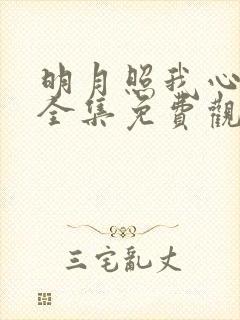 明月照我心
全集免費觀
三宅亂丈